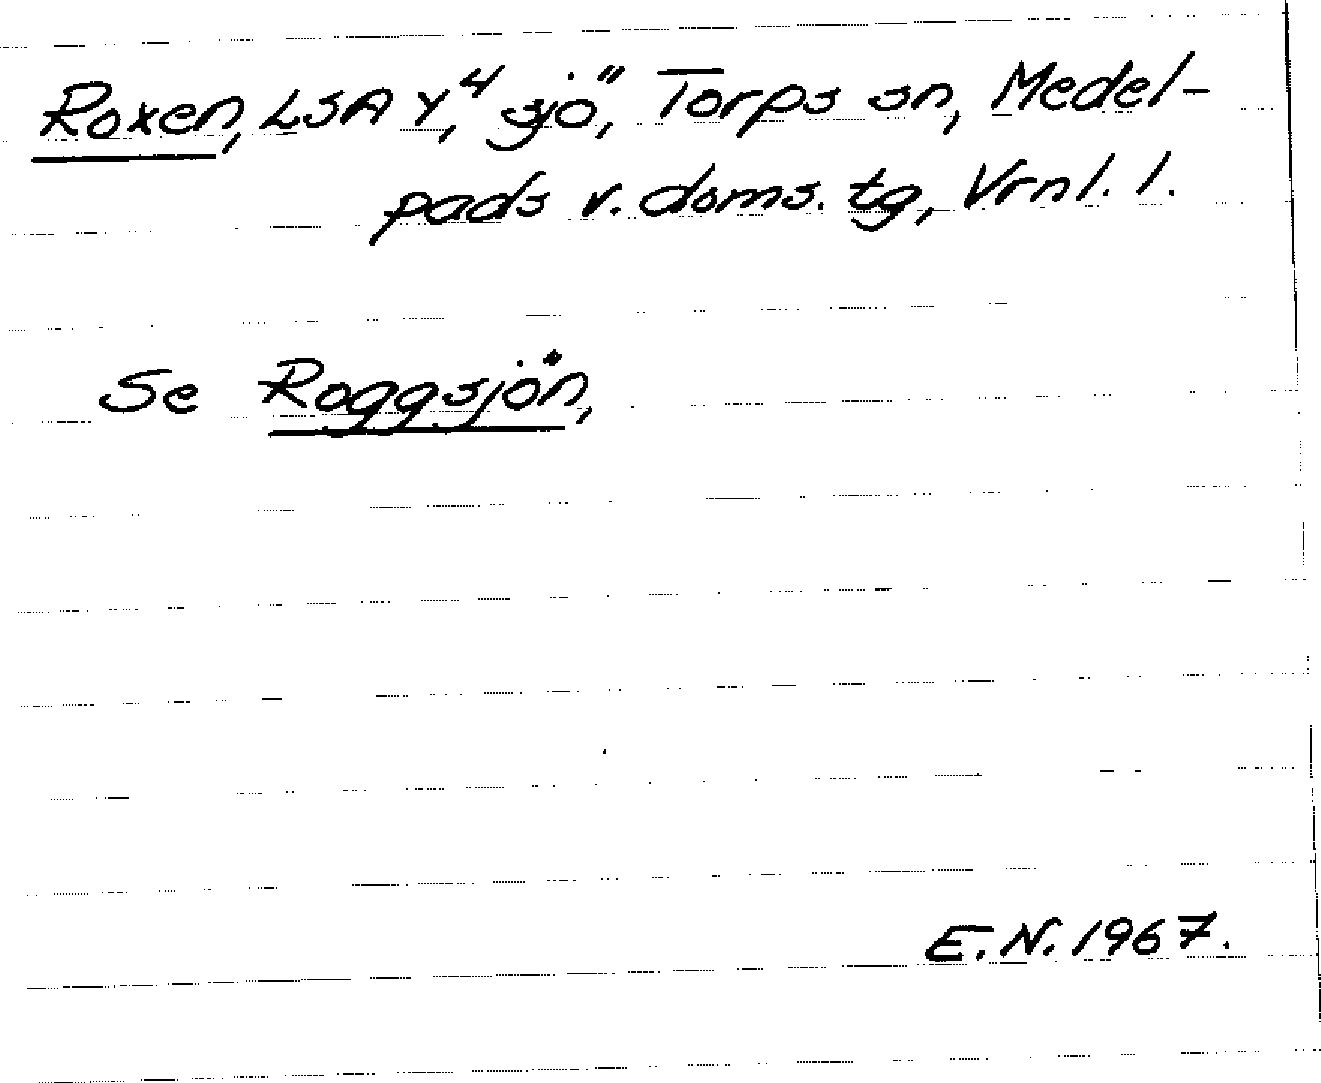 Roxen, LSA Y,⁴ sjö, Torps sn, Medel-
pads v. doms. tg, Vrnl. l.
Se Roggsjön,
E.N. 1967.